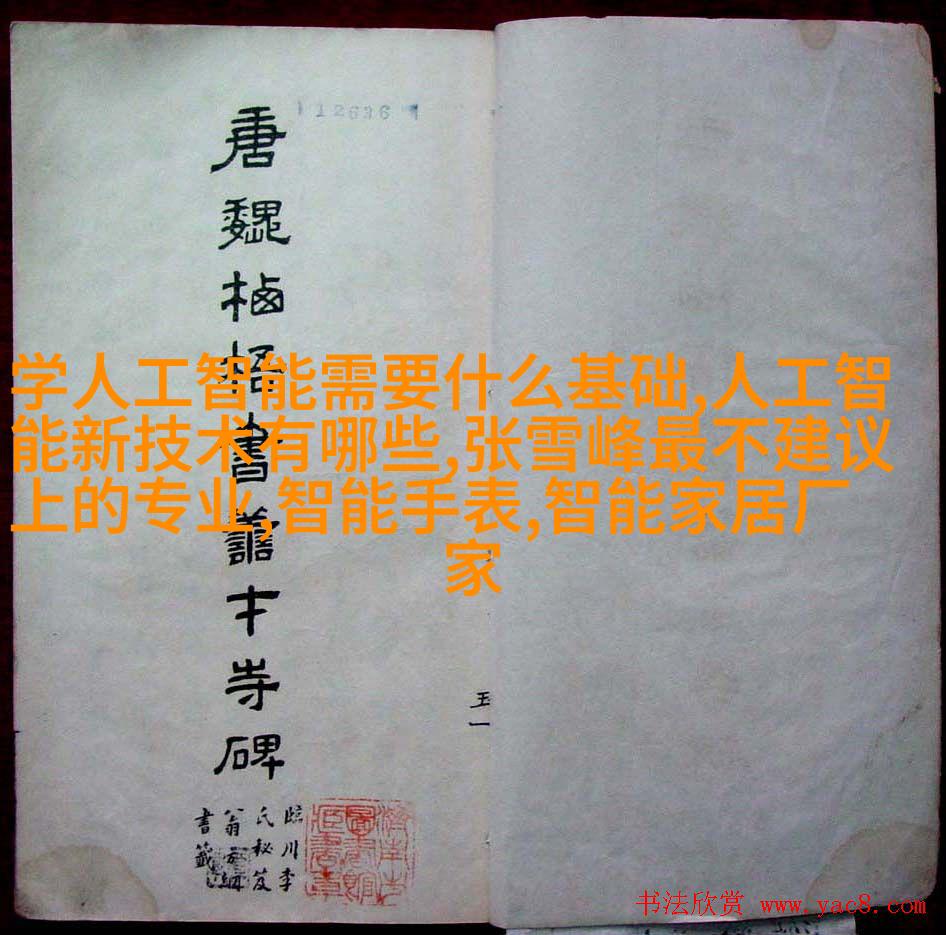 12636
唐魏栖梧書善才寺碑
臨川李
氏秘笈
翁方綱
書籤
濟南市
圖書館
藏書章
学人工智能需要什么基础,人工智
能新技术有哪些,张雪峰最不建议
上的专业,智能手表,智能家居厂
家
书法欣赏 www.yac8.com